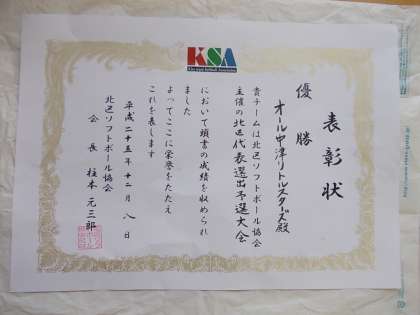 KSA
表彰状
優勝
オール中津リトルスターズ殿
貴チームは北区ソフトボール協会
主催の北区代表選出予選大会
において頭書の成績を収められ
ました
よってここに栄誉をたたえ
これを表します
平成二十五年十二月八日
北区ソフトボール協会
会長 柱本元三郎